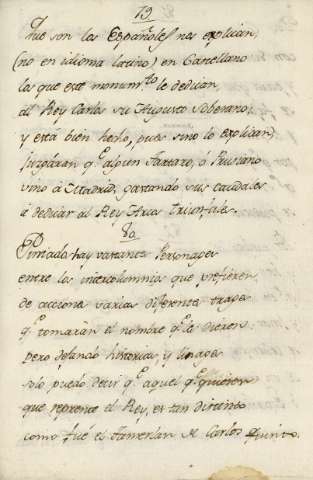 79
Que son los Españoles nos explican,
(no en idioma latino) en Castellano
los que este monum.to le dedican,
al Rey Carlos su Augusto Soberano;
y está bien hecho, pues sino lo explican,
juzgáran q.e algun Tartaro, ó Prusiano
vino á Madrid, gastando sus caudales
á dedicar al Rey Arcos Triunfales.
80
Pintados hay variantes Personages
entre los intercolumnios que refieren,
de acciones varias diferentes trages
q.e tomarán el nombre q.e le dieren
pero dejando historias, y linages
solo puedo decir q.e aquel q.e quieren
que represente el Rey, es tan distinto
como fué el Tamerlan de Carlos Quinto.